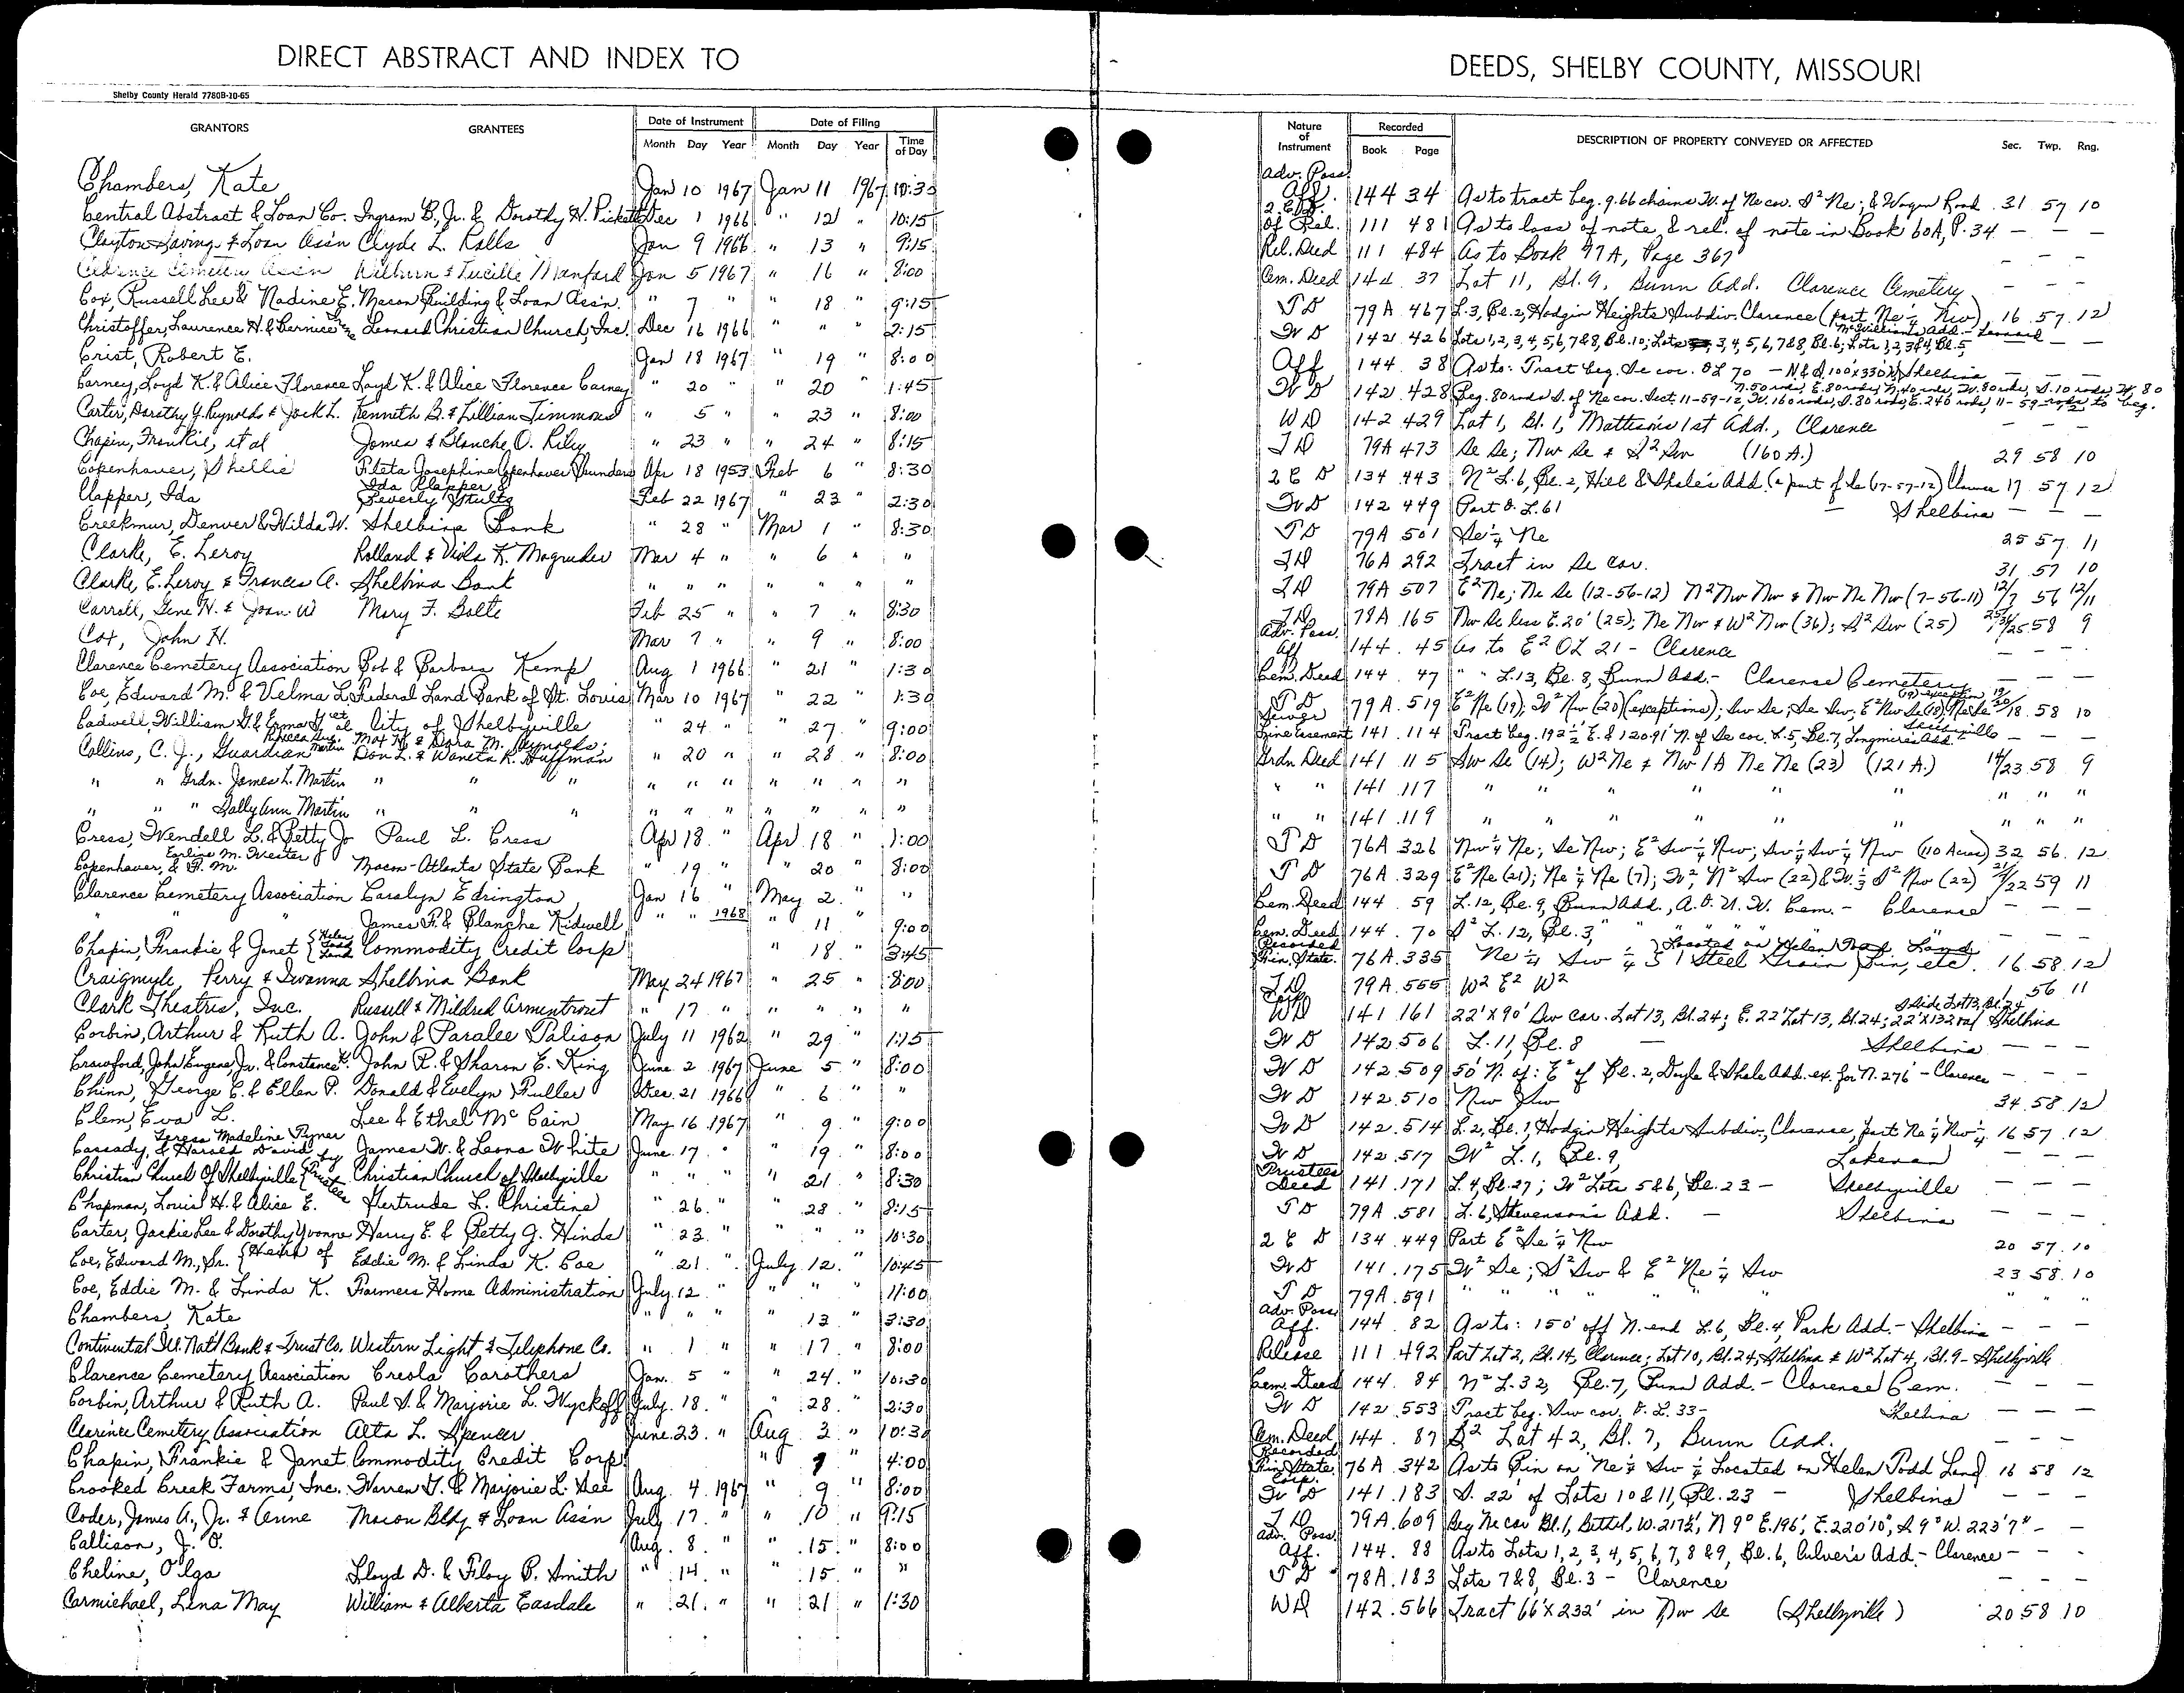 DIRECT ABSTRACT AND INDEX TO
Shelby County Herald 7780B-10-65
GRANTORS GRANTEES Date of Instrument Date of Filing
Month Day Year Month Day Year Time of Day
Chambers, Kate Jan 10 1967 Jan 11 1967 10:30
Central Abstract & Loan Co. Ingram B., Jr. & Dorothy H. Pickett Dec 1 1966 " 12 " 10:15
Clayton Saving & Loan Ass'n Clyde L. Ralls Jan 9 1966 " 13 " 9:15
Clarence Cemetery Ass'n Wilburn & Lucille Manford Jan 5 1967 " 16 " 8:00
Cox, Russell Lee & Nadine E. Macon Building & Loan Ass'n. " 7 " " 18 " 9:15
Christoffer, Laurence H. & Bernice Leonard Christian Church, Inc. Dec 16 1966 " " " 2:15
Crist, Robert E. Jan 18 1967 " 19 " 8:00
Carney, Loyd K. & Alice Florence Loyd K. & Alice Florence Carney " 20 " 20 " 1:45
Carter, Dorothy Y. Reynolds & Jack L. Kenneth B. & Lillian Timmons " 5 " " 23 " 8:00
Chapin, Frankie, et al James & Blanche O. Riley " 23 " " 24 " 8:15
Copenhaver, Shellie Pileta Josephine Copenhaver Saunders Apr 18 1953 Feb 6 " 8:30
Clapper, Ida Ida Clapper & Beverly Stultz Feb 22 1967 " 23 " 2:30
Creekmur, Denver & Hilda W. Shelbina Bank " 28 " Mar 1 " 8:30
Clarke, E. Leroy Rolland & Viola K. Magruder Mar 4 " " 6 " "
Clarke, E. Leroy & Frances A. Shelbina Bank " " " " " " "
Carroll, Gene H. & Joan W Mary F. Bolte Feb 25 " " 7 " 8:30
Cox, John H. Mar 7 " " 9 " 8:00
Clarence Cemetery Association Bob & Barbara Kemp Aug 1 1966 " 21 " 1:30
Coe, Edward M. & Velma L. Federal Land Bank of St. Louis Mar 10 1967 " 22 " 1:30
Cadwell, William G. & Erma G. et al City of Shelbyville " 24 " " 27 " 9:00
Collins, C. J., Guardian Rebecca Sue Martin Max H. & Dora M. Reynolds; Don L. & Waneta K. Huffman " 20 " " 28 " 8:00
" " Grdn. James L. Martin " " " " " " " " " "
" " " Sally Ann Martin " " " " " " " " " "
Cress, Wendell L. & Betty Jo Paul L. Cress Apr 18 " Apr 18 " 1:00
Copenhaver, Earline M. Wester & F. M. Macon-Atlanta State Bank " 19 " " 20 " 8:00
Clarence Cemetery Association Caralyn Edrington Jan 16 " May 2 " "
" " James F. & Blanche Kidwell " " 1968 " 11 " 9:00
Chapin, Frankie & Janet {Helen Todd Land Commodity Credit Corp " 18 " 3:45
Craigmyle, Perry & Iwanna Shelbina Bank May 24 1967 " 25 " 8:00
Clark Theatres, Inc. Russell & Mildred Armentrout " 17 " " " " "
Corbin, Arthur & Ruth A. John & Paralee Palison July 11 1962 " 29 " 1:15
Crawford, John Eugene, Jr. & Constance K. John R. & Sharon E. King June 2 1967 June 5 " 8:00
Chinn, George E. & Ellen P. Donald & Evelyn Fuller Dec. 21 1966 " 6 " "
Clem, Eva L. Lee & Ethel McCain May 16 1967 " 9 " 9:00
Cassady, Teresa Madeline Pyner & Harold David by James W. & Leona White June 17 " " 19 " 8:00
Christian Church Of Shelbyville {Trustees Christian Church of Shelbyville " " " " 21 " 8:30
Chapman, Louis H. & Alice E. Gertrude L. Christine " 26 " " 28 " 8:15
Carter, Jackie Lee & Dorothy Yvonne Harry E. & Betty J. Hinds " 23 " " " " 10:30
Coe, Edward M., Sr. {Heirs of Eddie M. & Linda K. Coe " 21 " July 12 " 10:45
Coe, Eddie M. & Linda K. Farmers Home Administration July 12 " " " " 11:00
Chambers, Kate " " " " 13 " 3:30
Continental Ill. Nat'l Bank & Trust Co. Western Light & Telephone Co. " 1 " " 17 " 8:00
Clarence Cemetery Association Creola Carothers Jan. 5 " " 24 " 10:30
Corbin, Arthur & Ruth A. Paul S. & Marjorie L. Wyckoff July 18 " " 28 " 2:30
Clarence Cemetery Association Alta L. Spencer June 23 " Aug 3 " 10:30
Chapin, Frankie & Janet Commodity Credit Corp. " 9 " 4:00
Crooked Creek Farms, Inc. Warren G. & Marjorie L. See Aug. 4 1967 " 9 " 8:00
Coder, James A., Jr. & Anne Macon Bldg & Loan Ass'n July 17 " " 10 " 9:15
Callison, J. O. Aug. 8 " " 15 " 8:00
Cheline, Olga Lloyd D. & Floy P. Smith " 14 " " 15 " "
Carmichael, Lena May William & Alberta Easdale " 21 " " 21 " 1:30
DEEDS, SHELBY COUNTY, MISSOURI
Nature of Instrument Recorded DESCRIPTION OF PROPERTY CONVEYED OR AFFECTED Sec. Twp. Rng.
Book Page
Adv. Poss. Aff. 144 34 As to tract beg. 9.66 chains W. of Ne cor. S² Ne; & Wagon Road 31 57 10
of Rel. 111 481 As to loss of note & rel. of note in Book 60A, P. 34 — — —
Rel. Deed 111 484 As to Book 77A, Page 367 — — —
Cem. Deed 144 37 Lot 11, Bl. 9, Bunn Add. Clarence Cemetery — — —
T D 79A 467 L.3, Bl.2, Hodgin Heights Subdiv. Clarence (part Ne ¼ Nw) 16 57 12
W D 142 426 Lots 1,2,3,4,5,6,7&8, Bl.10; Lots 3,4,5,6,7&8, Bl.6; Lots 1,2,3&4, Bl.5 McWilliams Add. - Leonard — —
Aff 144 38 As to: Tract beg. Se cor. OL 70 — N & S 100'x330' Shelbina — — —
W D 142 428 Beg. 80 rods S. of Ne cor. Sect. 11-59-12, W. 160 rods, S. 80 rods, E. 240 rods, N. 50 rods, E. 80 rods, N. 40 rods, W. 80 rods, S. 10 rods, W. 80 rods to beg. 11-59-12
WD 142 429 Lot 1, Bl. 1, Mattison's 1st Add., Clarence
T D 79A 473 Se Se; Nw Se & S² Sw (160 A.) 29 58 10
2 E D 134 443 N² L.6, Bl. 2, Hill & Shale's Add. (a part of Se 17-57-12) Clarence 17 57 12
W D 142 449 Part O. L. 61 — Shelbina — — —
T D 79A 501 Se ¼ Ne 25 57 11
T D 76A 292 Tract in Se cor. 31 57 10
T D 79A 507 E² Ne; Ne Se (12-56-12) N² Nw Nw & Nw Ne Nw (7-56-11) 12/7 56 12/11
T D 78A 165 Nw Se less E. 20' (25); Ne Nw & W² Nw (36); S² Sw (25) 58 9
Adv. Poss. Aff 144 45 As to E² OL 21 - Clarence — — —
Cem. Deed 144 47 " " L.13, Bl. 8, Bunn Add. - Clarence Cemetery — — —
T D 79A 519 E² Ne (19); W² Nw (20) (exceptions); Sw Se; Se Sw; E² Nw Se (18); Ne Se (19) exception 58 10
Sewer Line Easement 141 114 Tract beg. 192 ½' E. & 120.91' N. of Se cor. L.5, Bl.7, Longmire's Add. Shelbyville — — —
Grdn Deed 141 115 Sw Se (14); W² Ne & Nw 1A Ne Ne (23) (121 A.) 14/23 58 9
" " 141 117 " " " " " " " "
" " 141 119 " " " " " " " "
T D 76A 326 Nw ¼ Ne; Se Nw; E² Sw ¼ Nw; Sw ¼ Sw ¼ Nw (110 Acres) 32 56 12
T D 76A 329 E² Ne (21); Ne ¼ Ne (7); W², N² Sw (22) & W. ⅓ S² Nw (22) 21/22 59 11
Cem. Deed 144 59 L.12, Bl. 9, Bunn Add., A.O.U.W. Cem. - Clarence — — —
Cem. Deed 144 70 S² L.12, Bl.3, " " " " " — — —
Recorded Fin. State. 76A 335 Ne ¼ Sw ¼ 1 Steel Grain Bin, etc. Located on Helen Todd Land 16 58 12
T D 79A 555 W² E² W² 1 56 11
Corp. WD 141 161 22' X 90' Sw cor. Lot 13, Bl.24; E. 22' Lot 13, Bl.24; 22'X132' S side Lot 13, Bl. 24 Shelbina
W D 142 506 L. 11, Bl. 8 — Shelbina — — —
W D 142 509 50' N. of: E² of Bl. 2, Doyle & Shale Add. ex. for N. 276' - Clarence — — —
W D 142 510 Nw Sw 34 58 12
W D 142 514 L. 2, Bl. 1, Hodgin Heights Subdiv., Clarence, part Ne ¼ Nw ¼ 16 57 12
W D 142 517 W² L.1, Bl. 9, Lakenan — — —
Trustees Deed 141 171 L. 4, Bl. 27; W² Lots 5&6, Bl. 23 — Shelbyville — — —
T D 79A 581 L. 6, Stevenson's Add. — Shelbina — — —
2 E D 134 449 Part E² Se ¼ Nw 20 57 10
W D 141 175 W² Se; S² Sw & E² Ne ¼ Sw 23 58 10
T D 79A 591 " " " " " " " "
Adv. Poss. Aff. 144 82 As to: 150' off N. end L.6, Bl. 4, Park Add. - Shelbina — — —
Release 111 492 Part Lot 2, Bl. 14, Clarence; Lot 10, Bl. 24, Shelbina & W² Lot 4, Bl. 9 - Shelbyville
Cem. Deed 144 84 N² L. 32, Bl. 7, Bunn Add. - Clarence Cem. — — —
W D 142 553 Tract beg. Sw cor. O. L. 33 - Shelbina — — —
Cem. Deed 144 87 S² Lot 42, Bl. 7, Bunn Add. — — —
Recorded Fin. State. 76A 342 As to Bin on Ne ¼ Sw ¼ Located on Helen Todd Land 16 58 12
Corp. W D 141 183 S. 22' of Lots 10 & 11, Bl. 23 — Shelbina — — —
T D 79A 609 Beg Ne cor Bl.1, Bethel, W. 217½', N 9° E. 196', E. 220'10", S 9° W. 223'7" — —
Adv. Poss. Aff. 144 88 As to Lots 1, 2, 3, 4, 5, 6, 7, 8 & 9, Bl. 6, Culver's Add. - Clarence — — —
T D 78A 183 Lots 7&8, Bl. 3 - Clarence — — —
WD 142 566 Tract 66'X232' in Nw Se (Shelbyville) 20 58 10